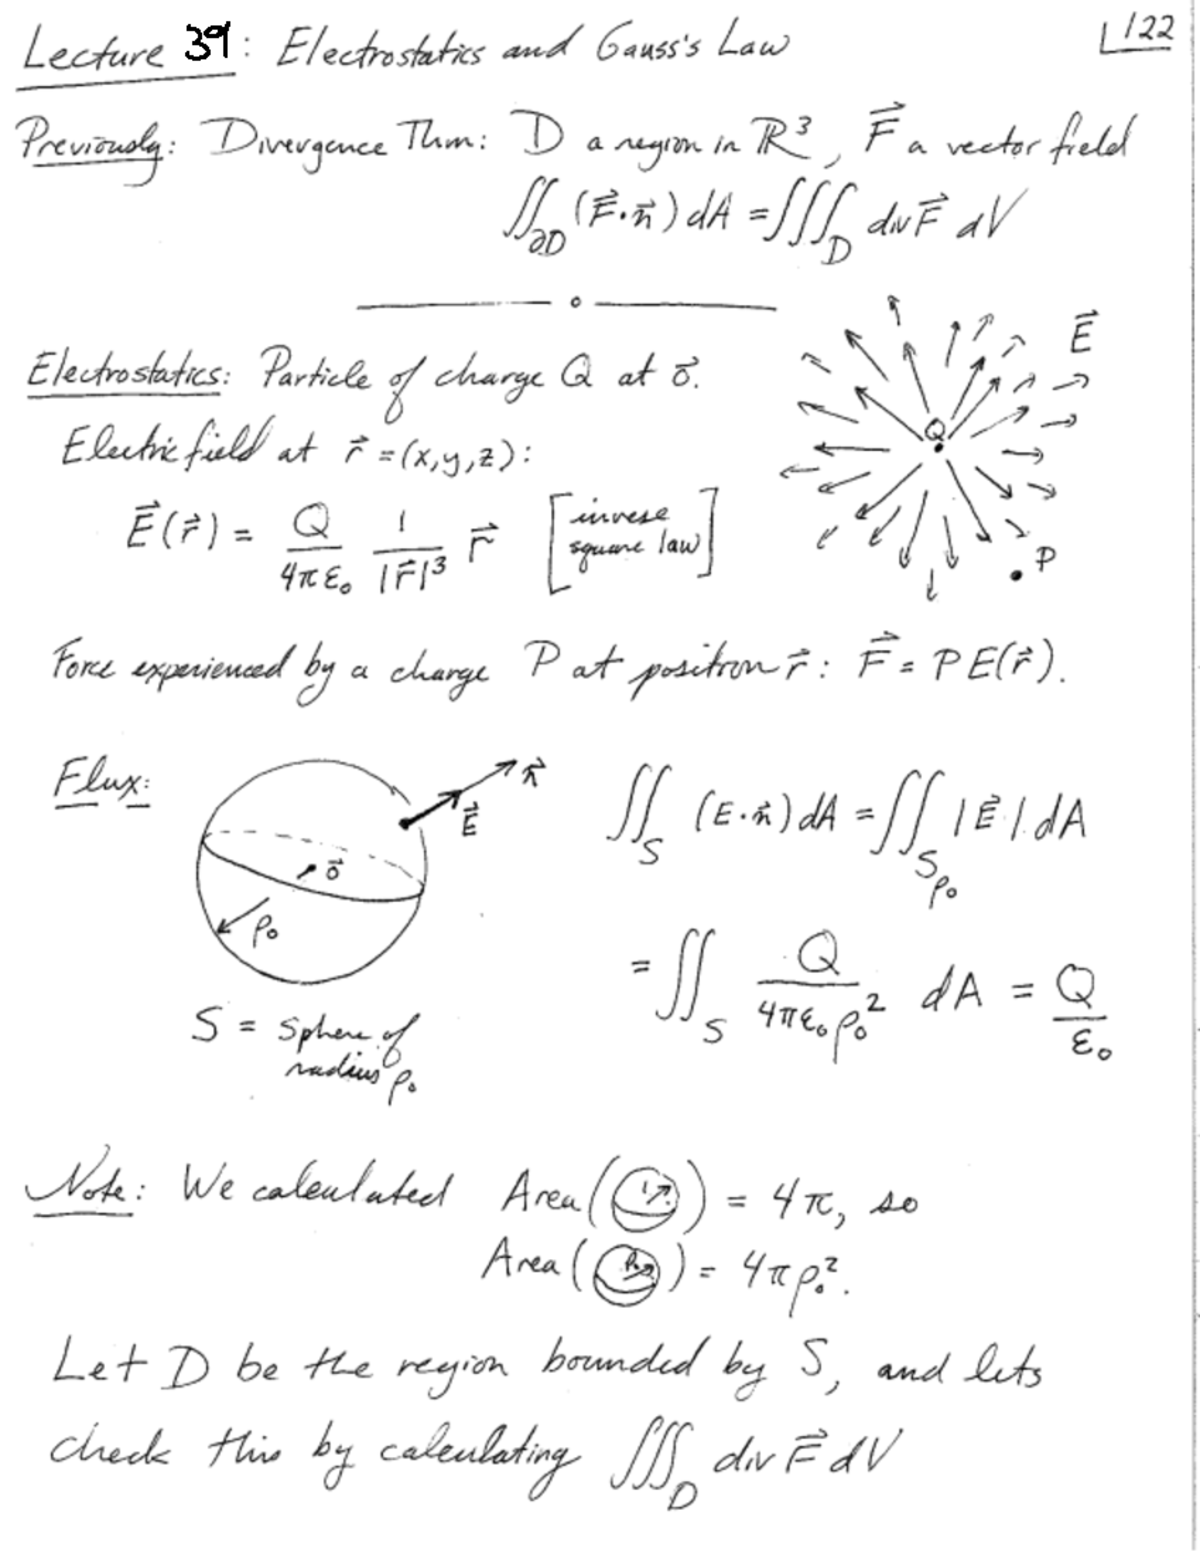 Lecture 39: Electrostatics and Gauss's Law
122
Previously: Divergence Thm: D a region in ℝ³, F⃗ a vector field
∬_∂D (F⃗·n⃗) dA = ∭_D div F⃗ dV
E⃗
Electrostatics: Particle of charge Q at 0⃗.
Q
Electric field at r⃗ = (x,y,z):
E⃗(r⃗) = Q/(4πε₀) 1/|r⃗|³ r⃗ [invese square law]
P
Force experienced by a charge P at position r⃗: F⃗ = P E(r⃗).
Flux:
n⃗
E⃗
0⃗
ρ₀
∬_S (E·n⃗) dA = ∬_{S_ρ₀} |E⃗| dA
= ∬_S Q/(4πε₀ρ₀²) dA = Q/ε₀
S = Sphere of
radius ρ₀
Note: We calculated Area(1) = 4π, so
Area(ρ₀) = 4πρ₀².
Let D be the region bounded by S, and lets
check this by calculating ∭_D div F⃗ dV